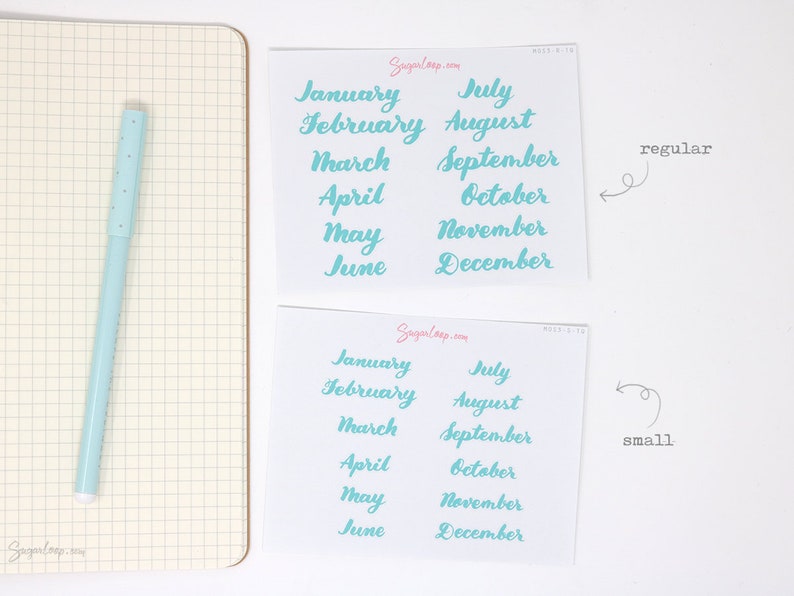 MOS3-R-TQ
Sugarloop.com
January July
February August
March September
April October
May November
June December
regular
MOS3-S-TQ
Sugarloop.com
January July
February August
March September
April October
May November
June December
small
Sugarloop.com